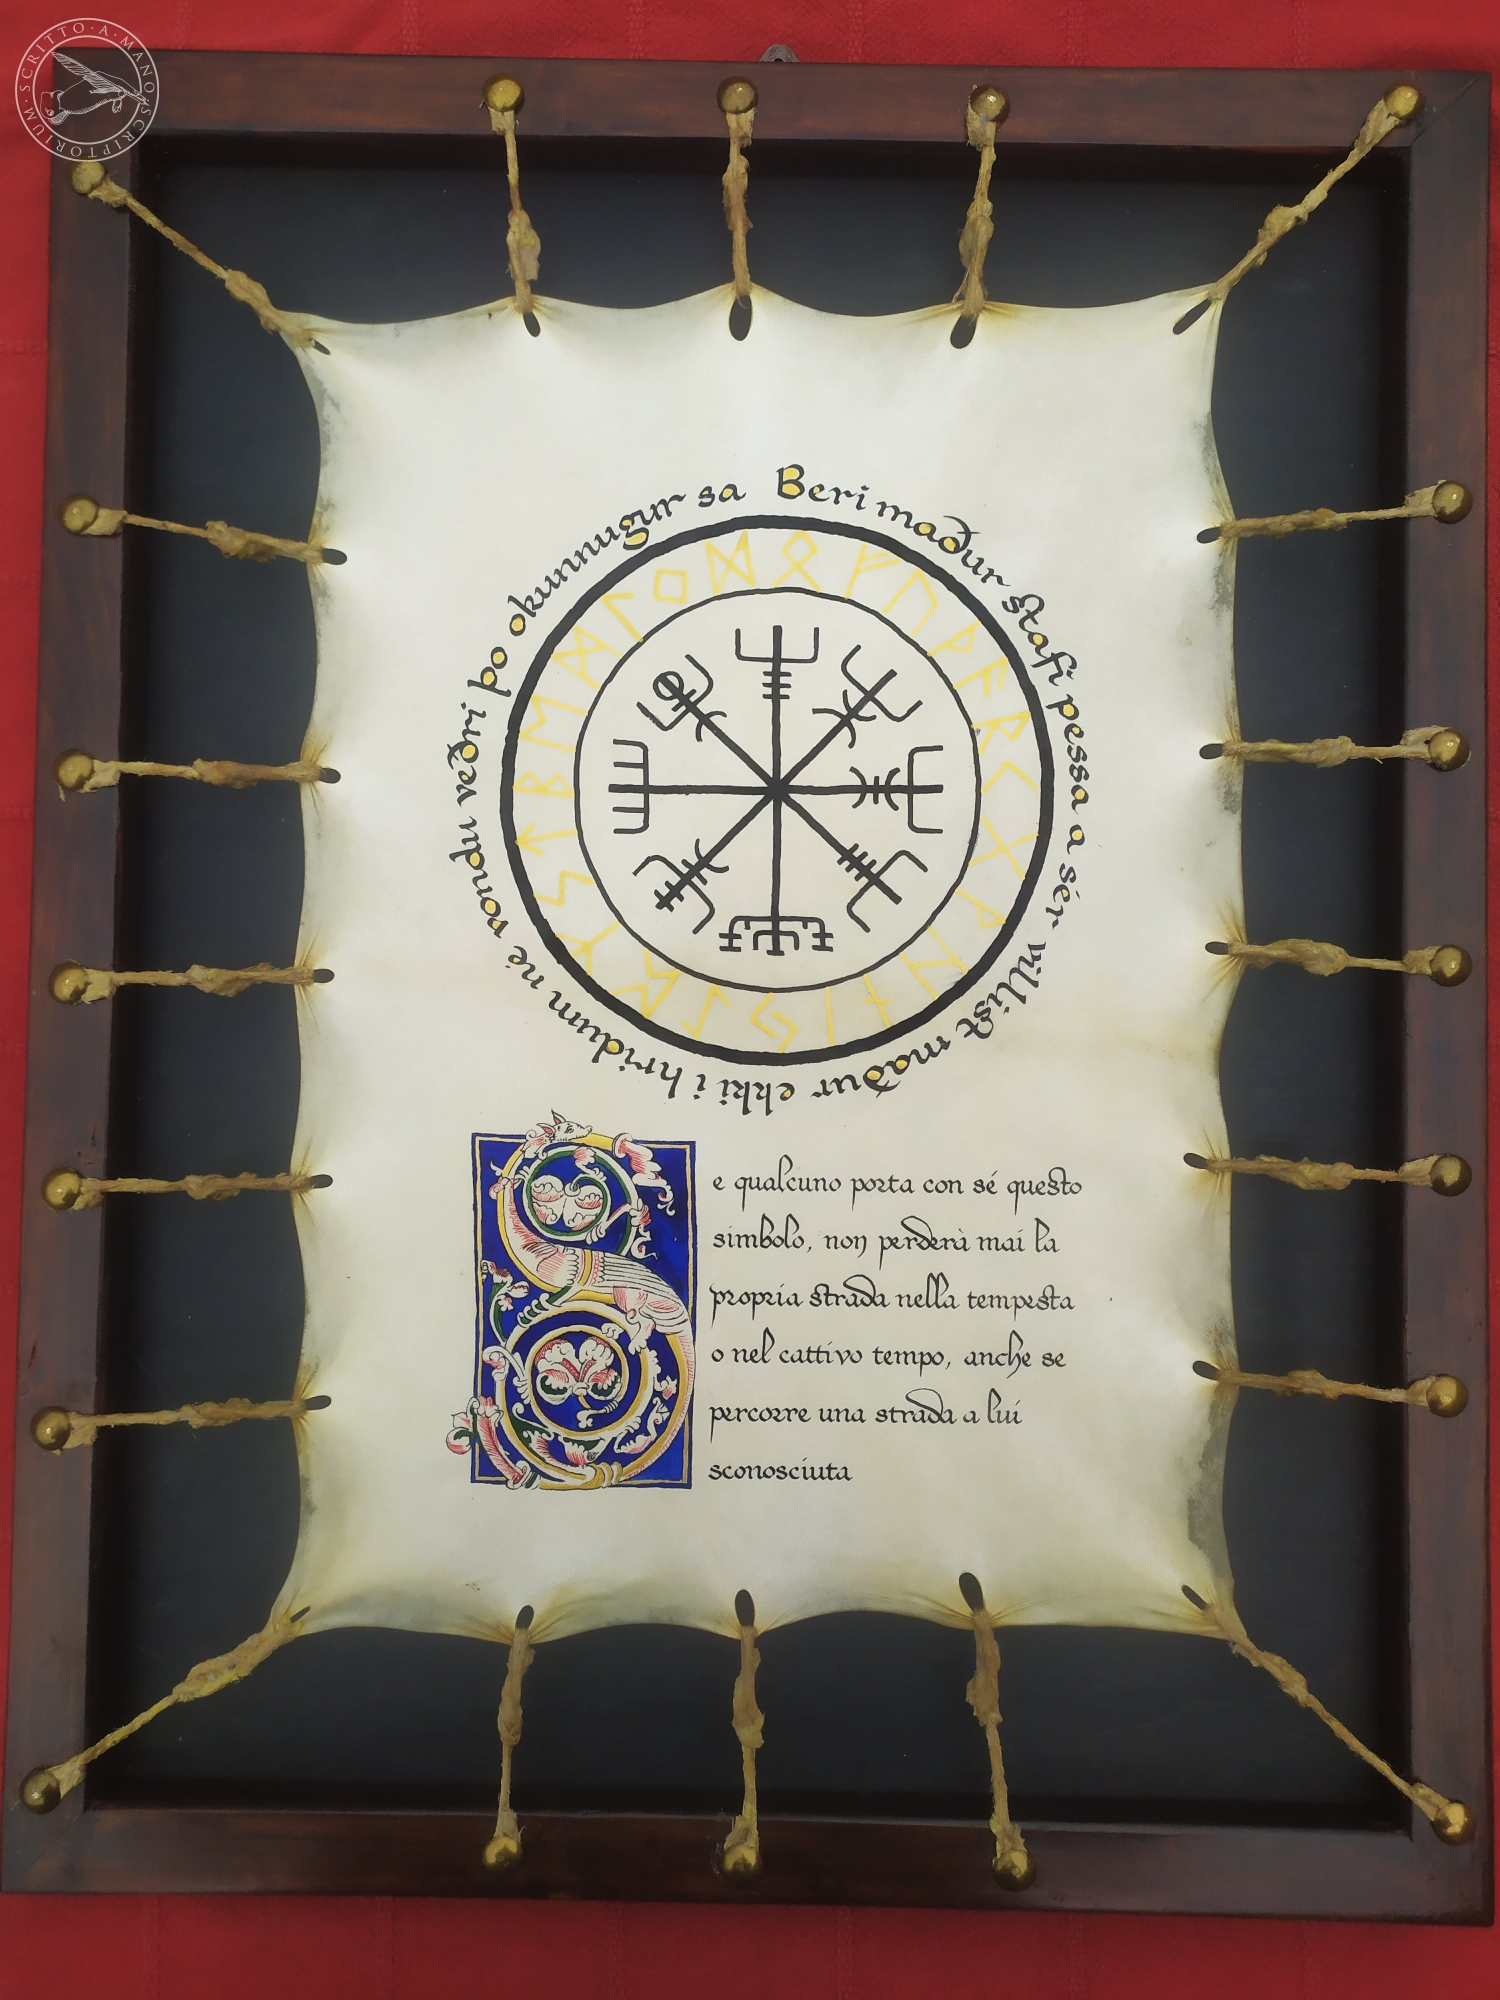 SCRITTO·A·MANO·SCRIPTORIUM·
Beri maður stafi pessa a sér villist maður ekki i hridum né vondu veðri þo okunnugur sa
Se qualcuno porta con sé questo
simbolo, non perderà mai la
propria strada nella tempesta
o nel cattivo tempo, anche se
percorre una strada a lui
sconosciuta